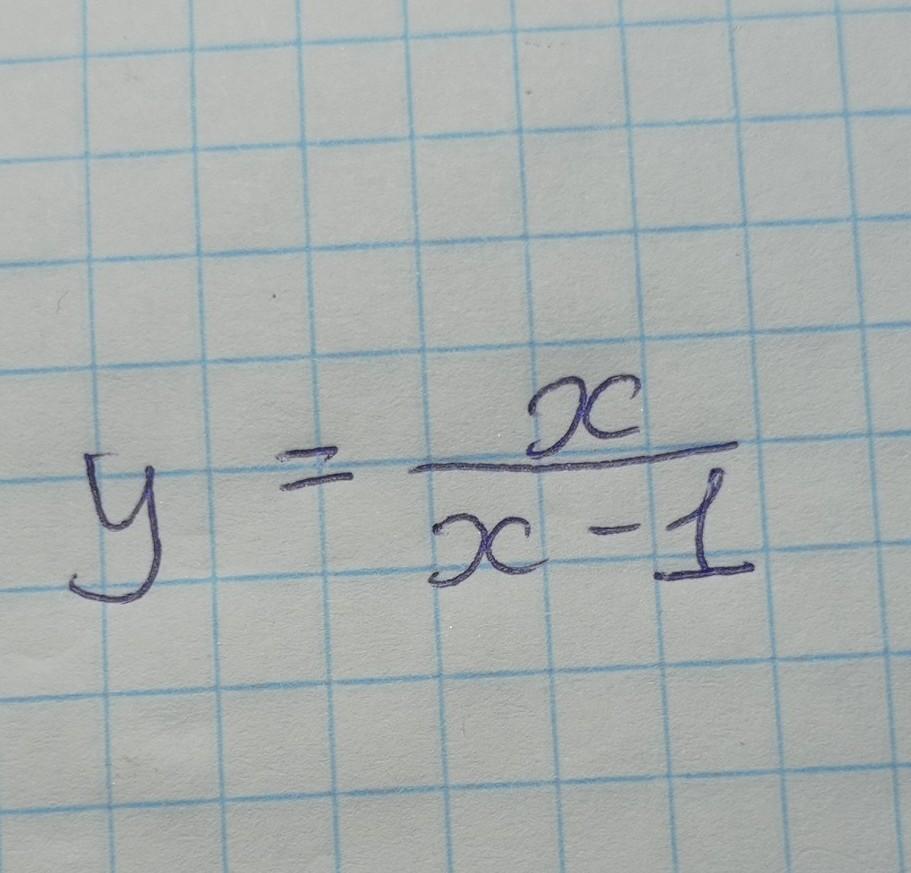 y = x / (x - 1)